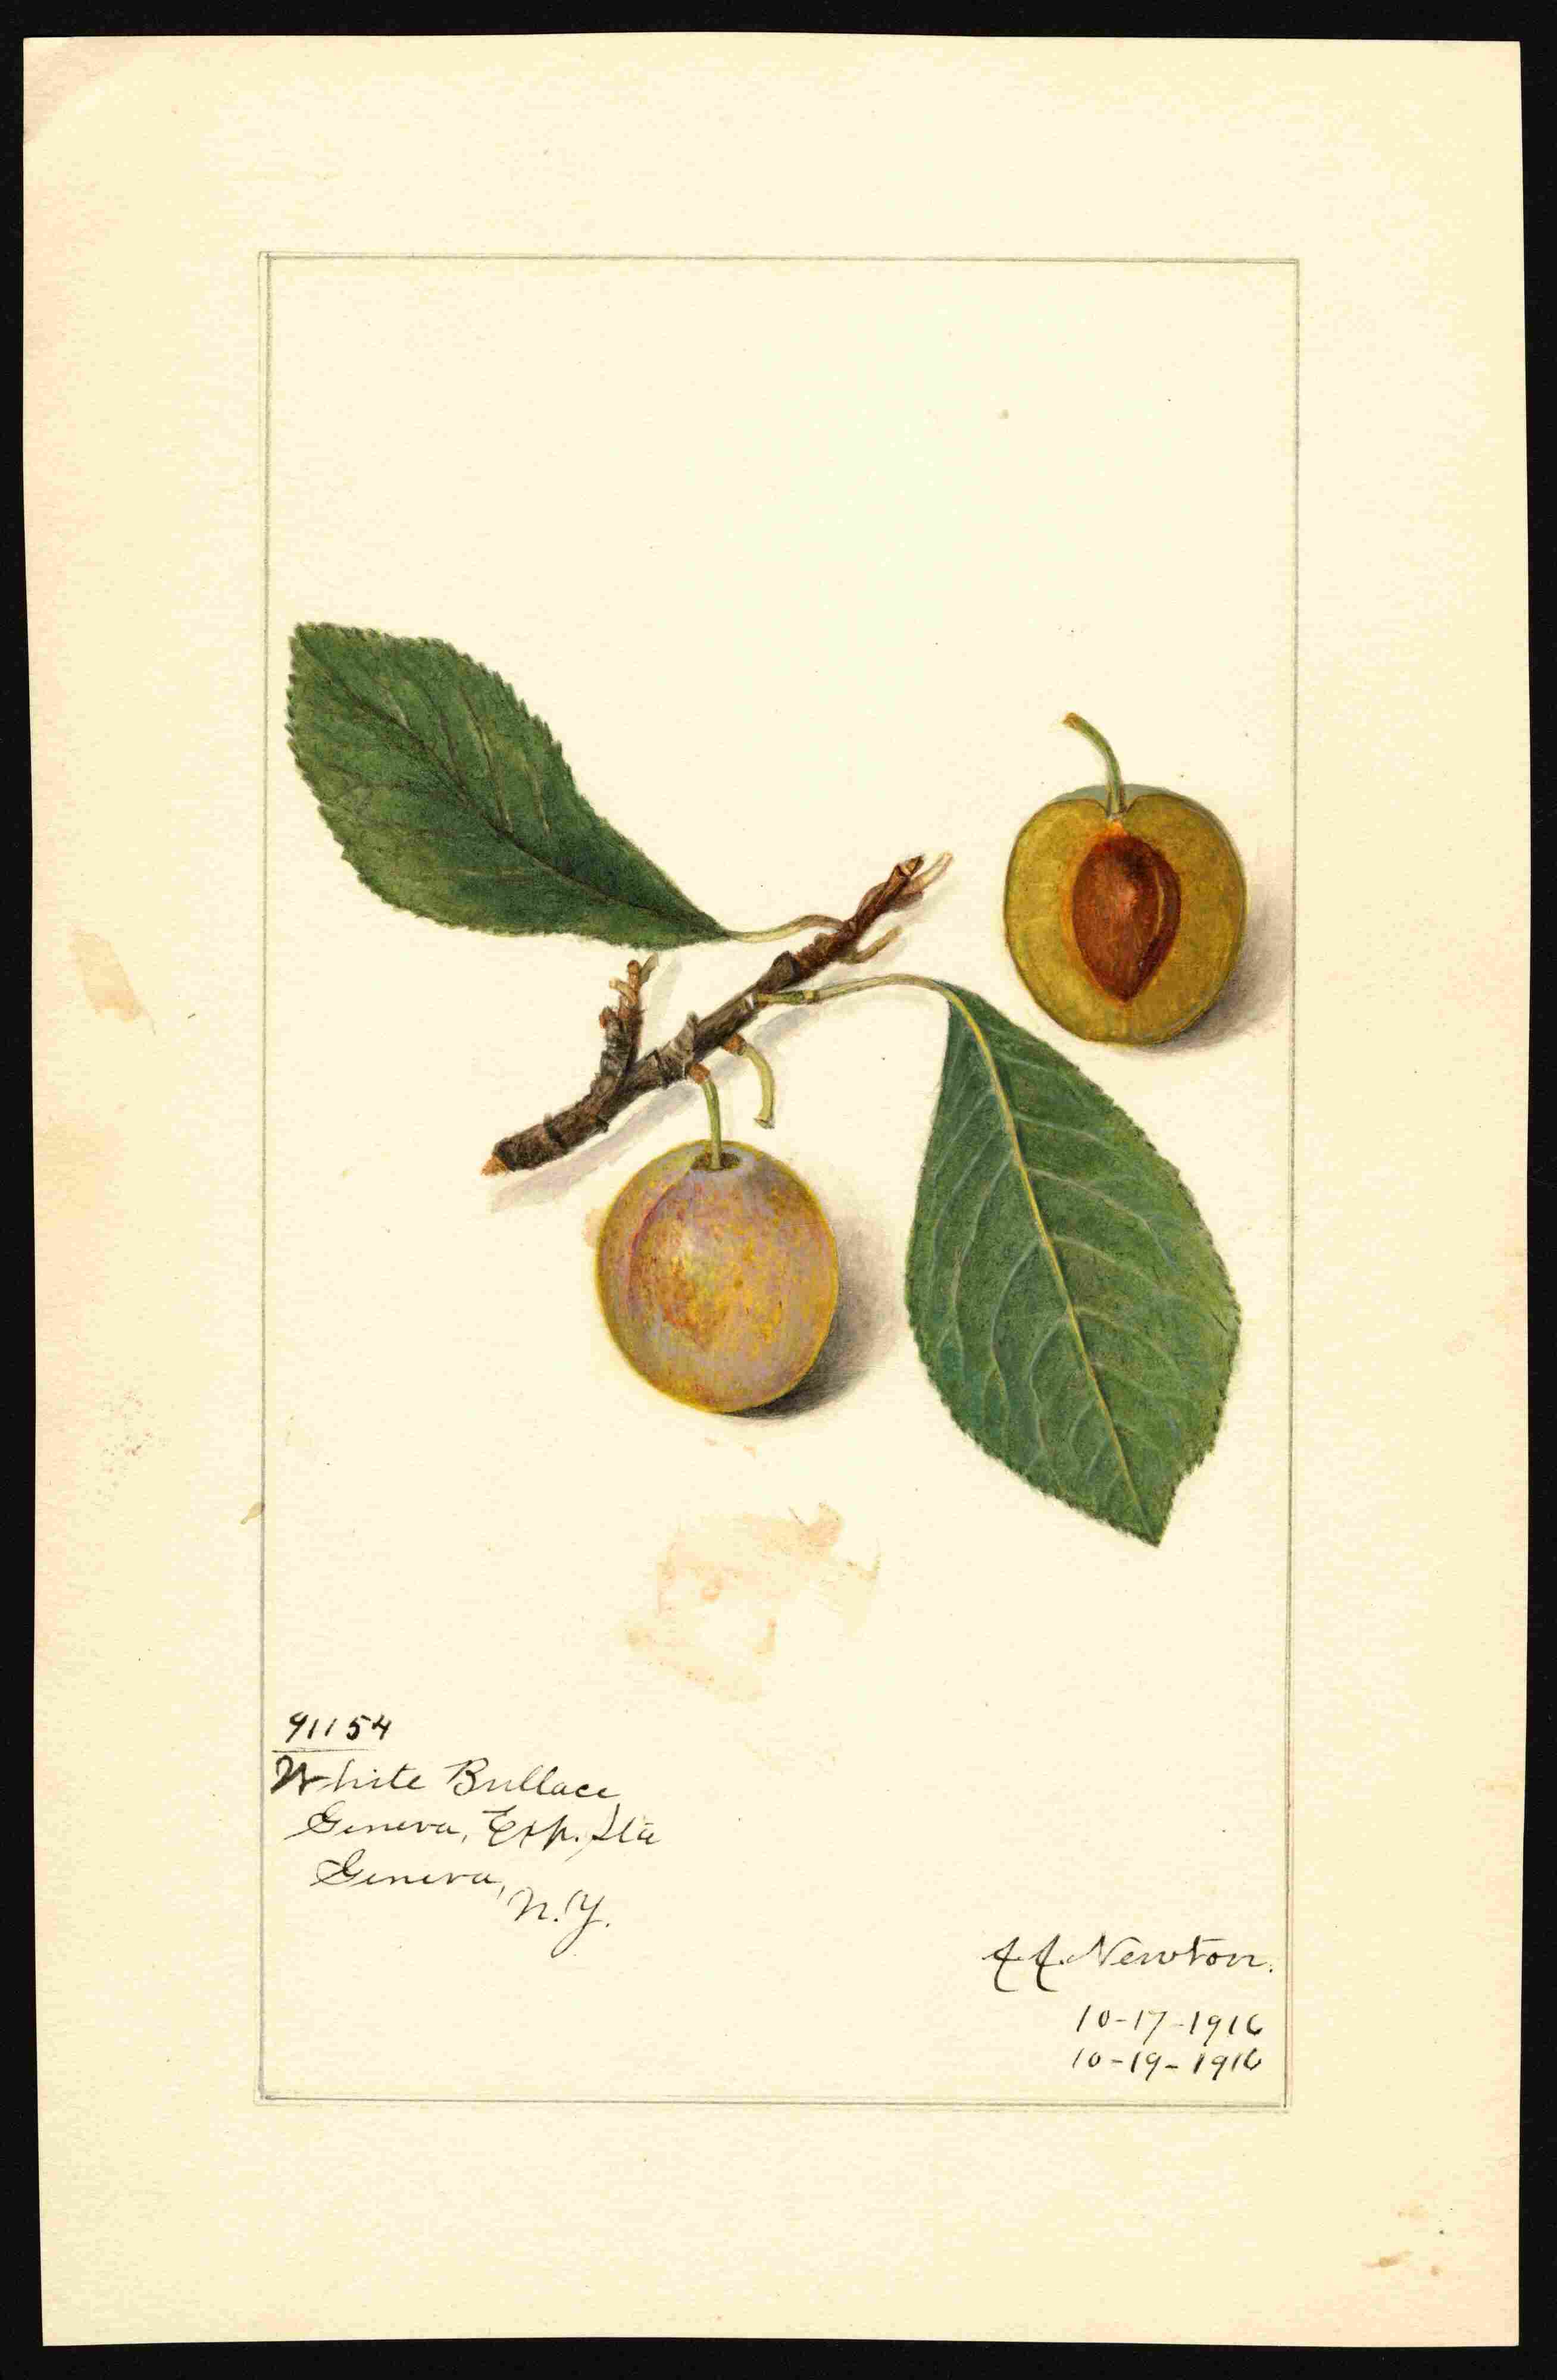 91154
White Bullace
Geneva, Exp. Sta
Geneva,
N.Y.
A.A. Newton.
10-17-1916
10-19-1916